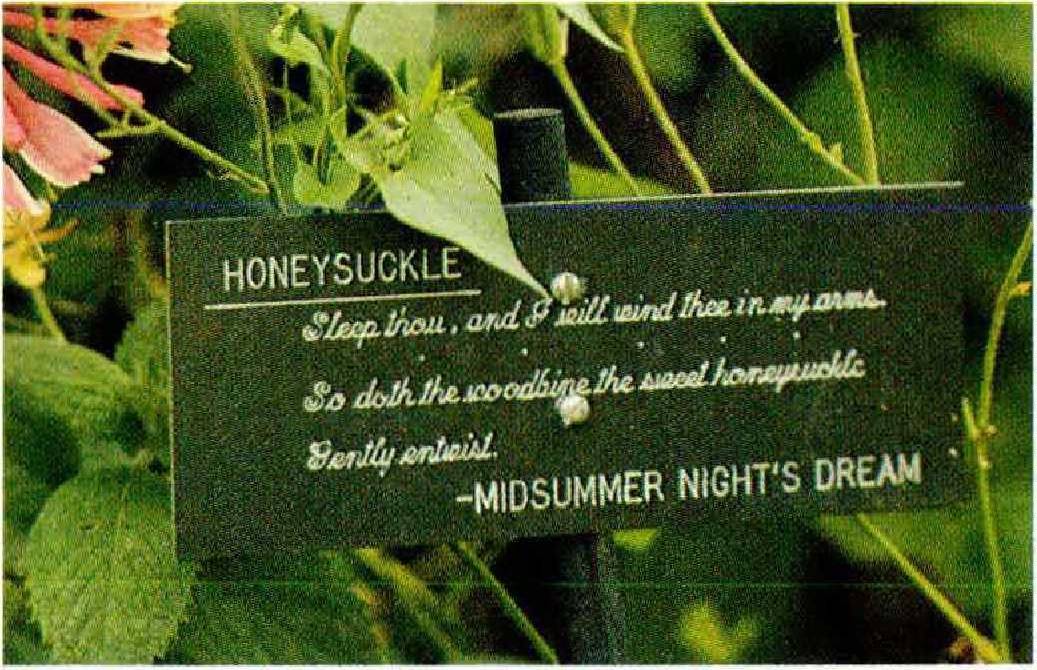 HONEYSUCKLE
Sleep thou, and I will wind thee in my arms.
. . . . .
So doth the woodbine the sweet honeysuckle
Gently entwist.
-MIDSUMMER NIGHT'S DREAM